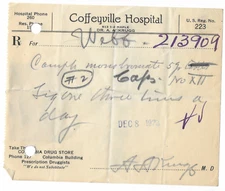 Hospital Phone
240
Res. Phone
Coffeyville Hospital
DR. A. A. KRUGG
U. S. Reg. No.
223
R For Webb 213909
Camph monobromate
#2 Caps. No XII
Sig one three times a
day.
DEC 8
Take Th
COLUMBIA DRUG STORE
Phone 127 Columbia Building
Prescription Druggists
"We do not Substitute"
M D